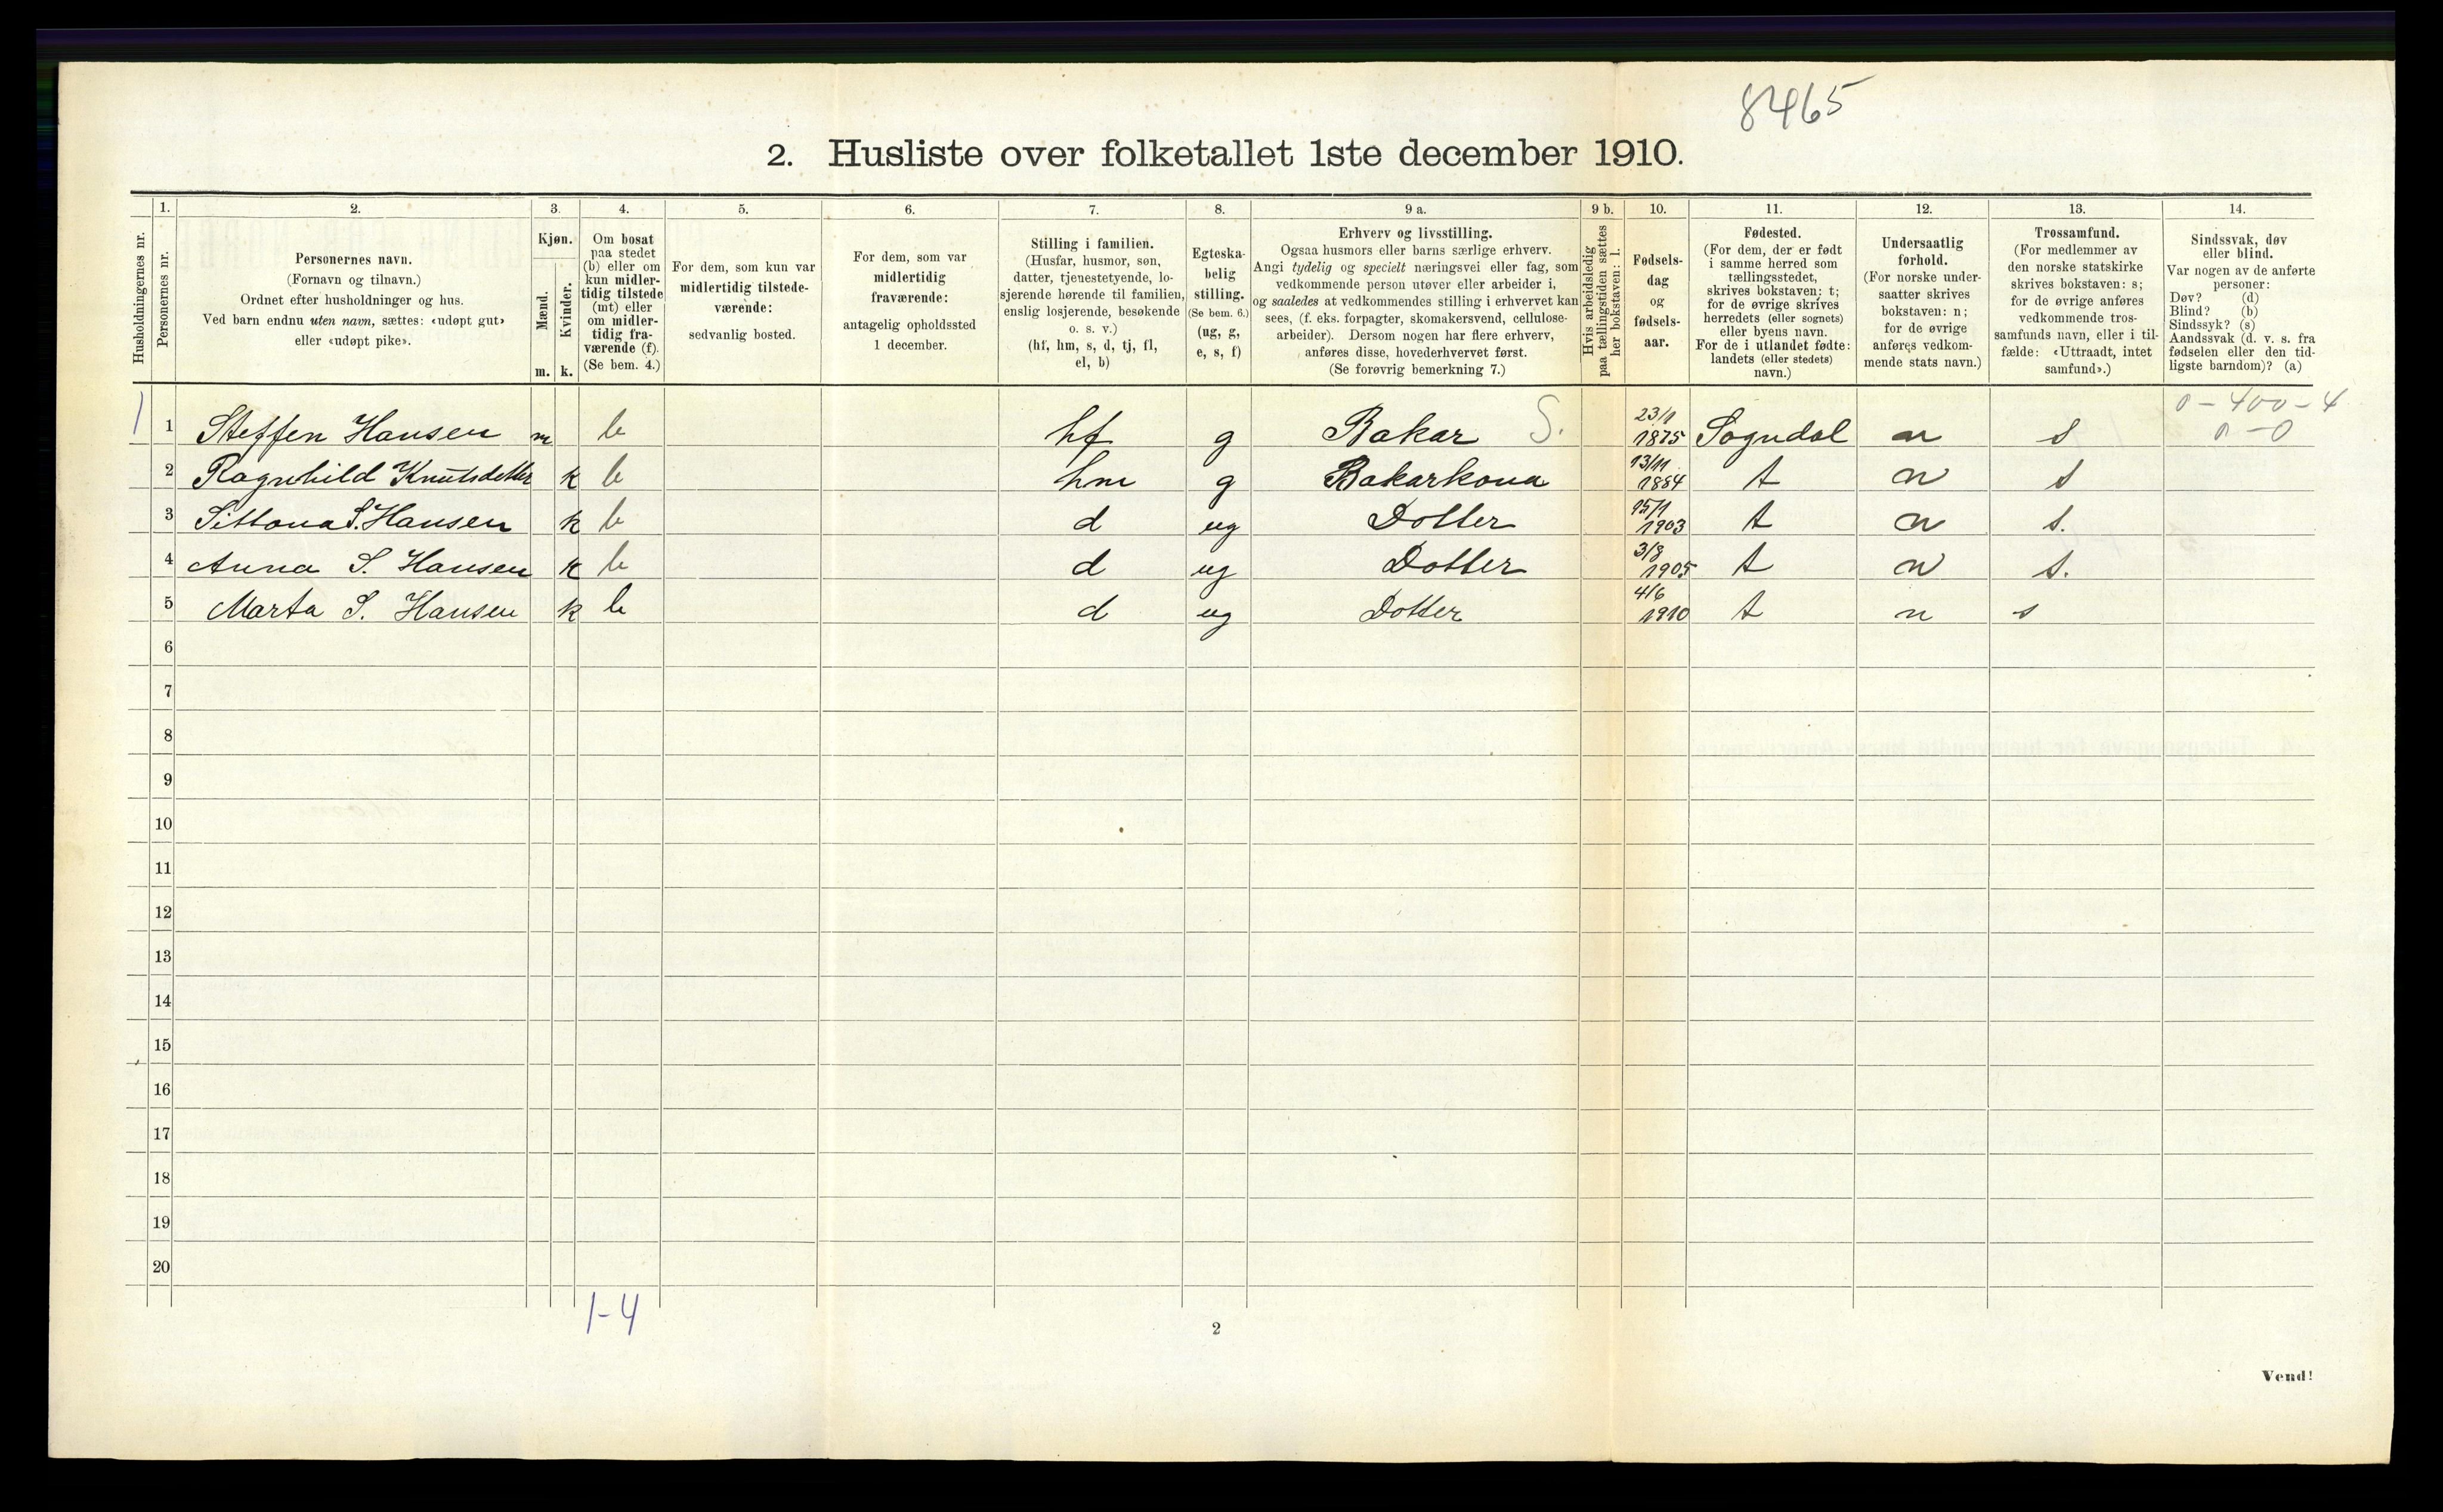 8465
2. Husliste over folketallet 1ste december 1910.
1. 2. 3. 4. 5. 6. 7. 8. 9 a. 9 b. 10. 11. 12. 13. 14.
Husholdningernes nr.
Personernes nr.
Personernes navn.
(Fornavn og tilnavn.)
Ordnet efter husholdninger og hus.
Ved barn endnu uten navn, sættes: «udøpt gut»
eller «udøpt pike».
Kjøn.
Mænd.
Kvinder.
m. k.
Om bosat
paa stedet
(b) eller om
kun midler-
tidig tilstede
(mt) eller
om midler-
tidig fra-
værende (f).
(Se bem. 4.)
For dem, som kun var
midlertidig tilstede-
værende:
sedvanlig bosted.
For dem, som var
midlertidig
fraværende:
antagelig opholdssted
1 december.
Stilling i familien.
(Husfar, husmor, søn,
datter, tjenestetyende, lo-
sjerende hørende til familien,
enslig losjerende, besøkende
o. s. v.)
(hf, hm, s, d, tj, fl,
el, b)
Egteska-
belig
stilling.
(Se bem. 6.)
(ug, g,
e, s, f)
Erhverv og livsstilling.
Ogsaa husmors eller barns særlige erhverv.
Angi tydelig og specielt næringsvei eller fag, som
vedkommende person utøver eller arbeider i,
og saaledes at vedkommendes stilling i erhvervet kan
sees, (f. eks. forpagter, skomakersvend, cellulose-
arbeider). Dersom nogen har flere erhverv,
anføres disse, hovederhvervet først.
(Se forøvrig bemerkning 7.)
Hvis arbeidsledig
paa tællingstiden sættes
her bokstaven: l.
Fødsels-
dag
og
fødsels-
aar.
Fødested.
(For dem, der er født
i samme herred som
tællingsstedet,
skrives bokstaven: t;
for de øvrige skrives
herredets (eller sognets)
eller byens navn.
For de i utlandet fødte:
landets (eller stedets)
navn.)
Undersaatlig
forhold.
(For norske under-
saatter skrives
bokstaven: n;
for de øvrige
anføres vedkom-
mende stats navn.)
Trossamfund.
(For medlemmer av
den norske statskirke
skrives bokstaven: s;
for de øvrige anføres
vedkommende tros-
samfunds navn, eller i til-
fælde: «Uttraadt, intet
samfund».)
Sindssvak, døv
eller blind.
Var nogen av de anførte
personer:
Døv? (d)
Blind? (b)
Sindssyk? (s)
Aandssvak (d. v. s. fra
fødselen eller den tid-
ligste barndom)? (a)
0 - 400 - 4
0 - 0
1 1 Steffen Hansen m b hf g Bakar S. 23/1 1875 Sogndal n s
2 Ragnhild Knutsdotter k b hm g Bakarkona 13/11 1884 t n s
3 S. Hansen k b d ug Dotter 15/1 1903 t n s.
4 Anna S. Hansen k b d ug Dotter 3/8 1905 t n s.
5 Marta S. Hansen k b d ug Dotter 4/6 1910 t n s
6
7
8
9
10
11
12
13
14
15
16
17
18
19
20
1-4
2
Vend!